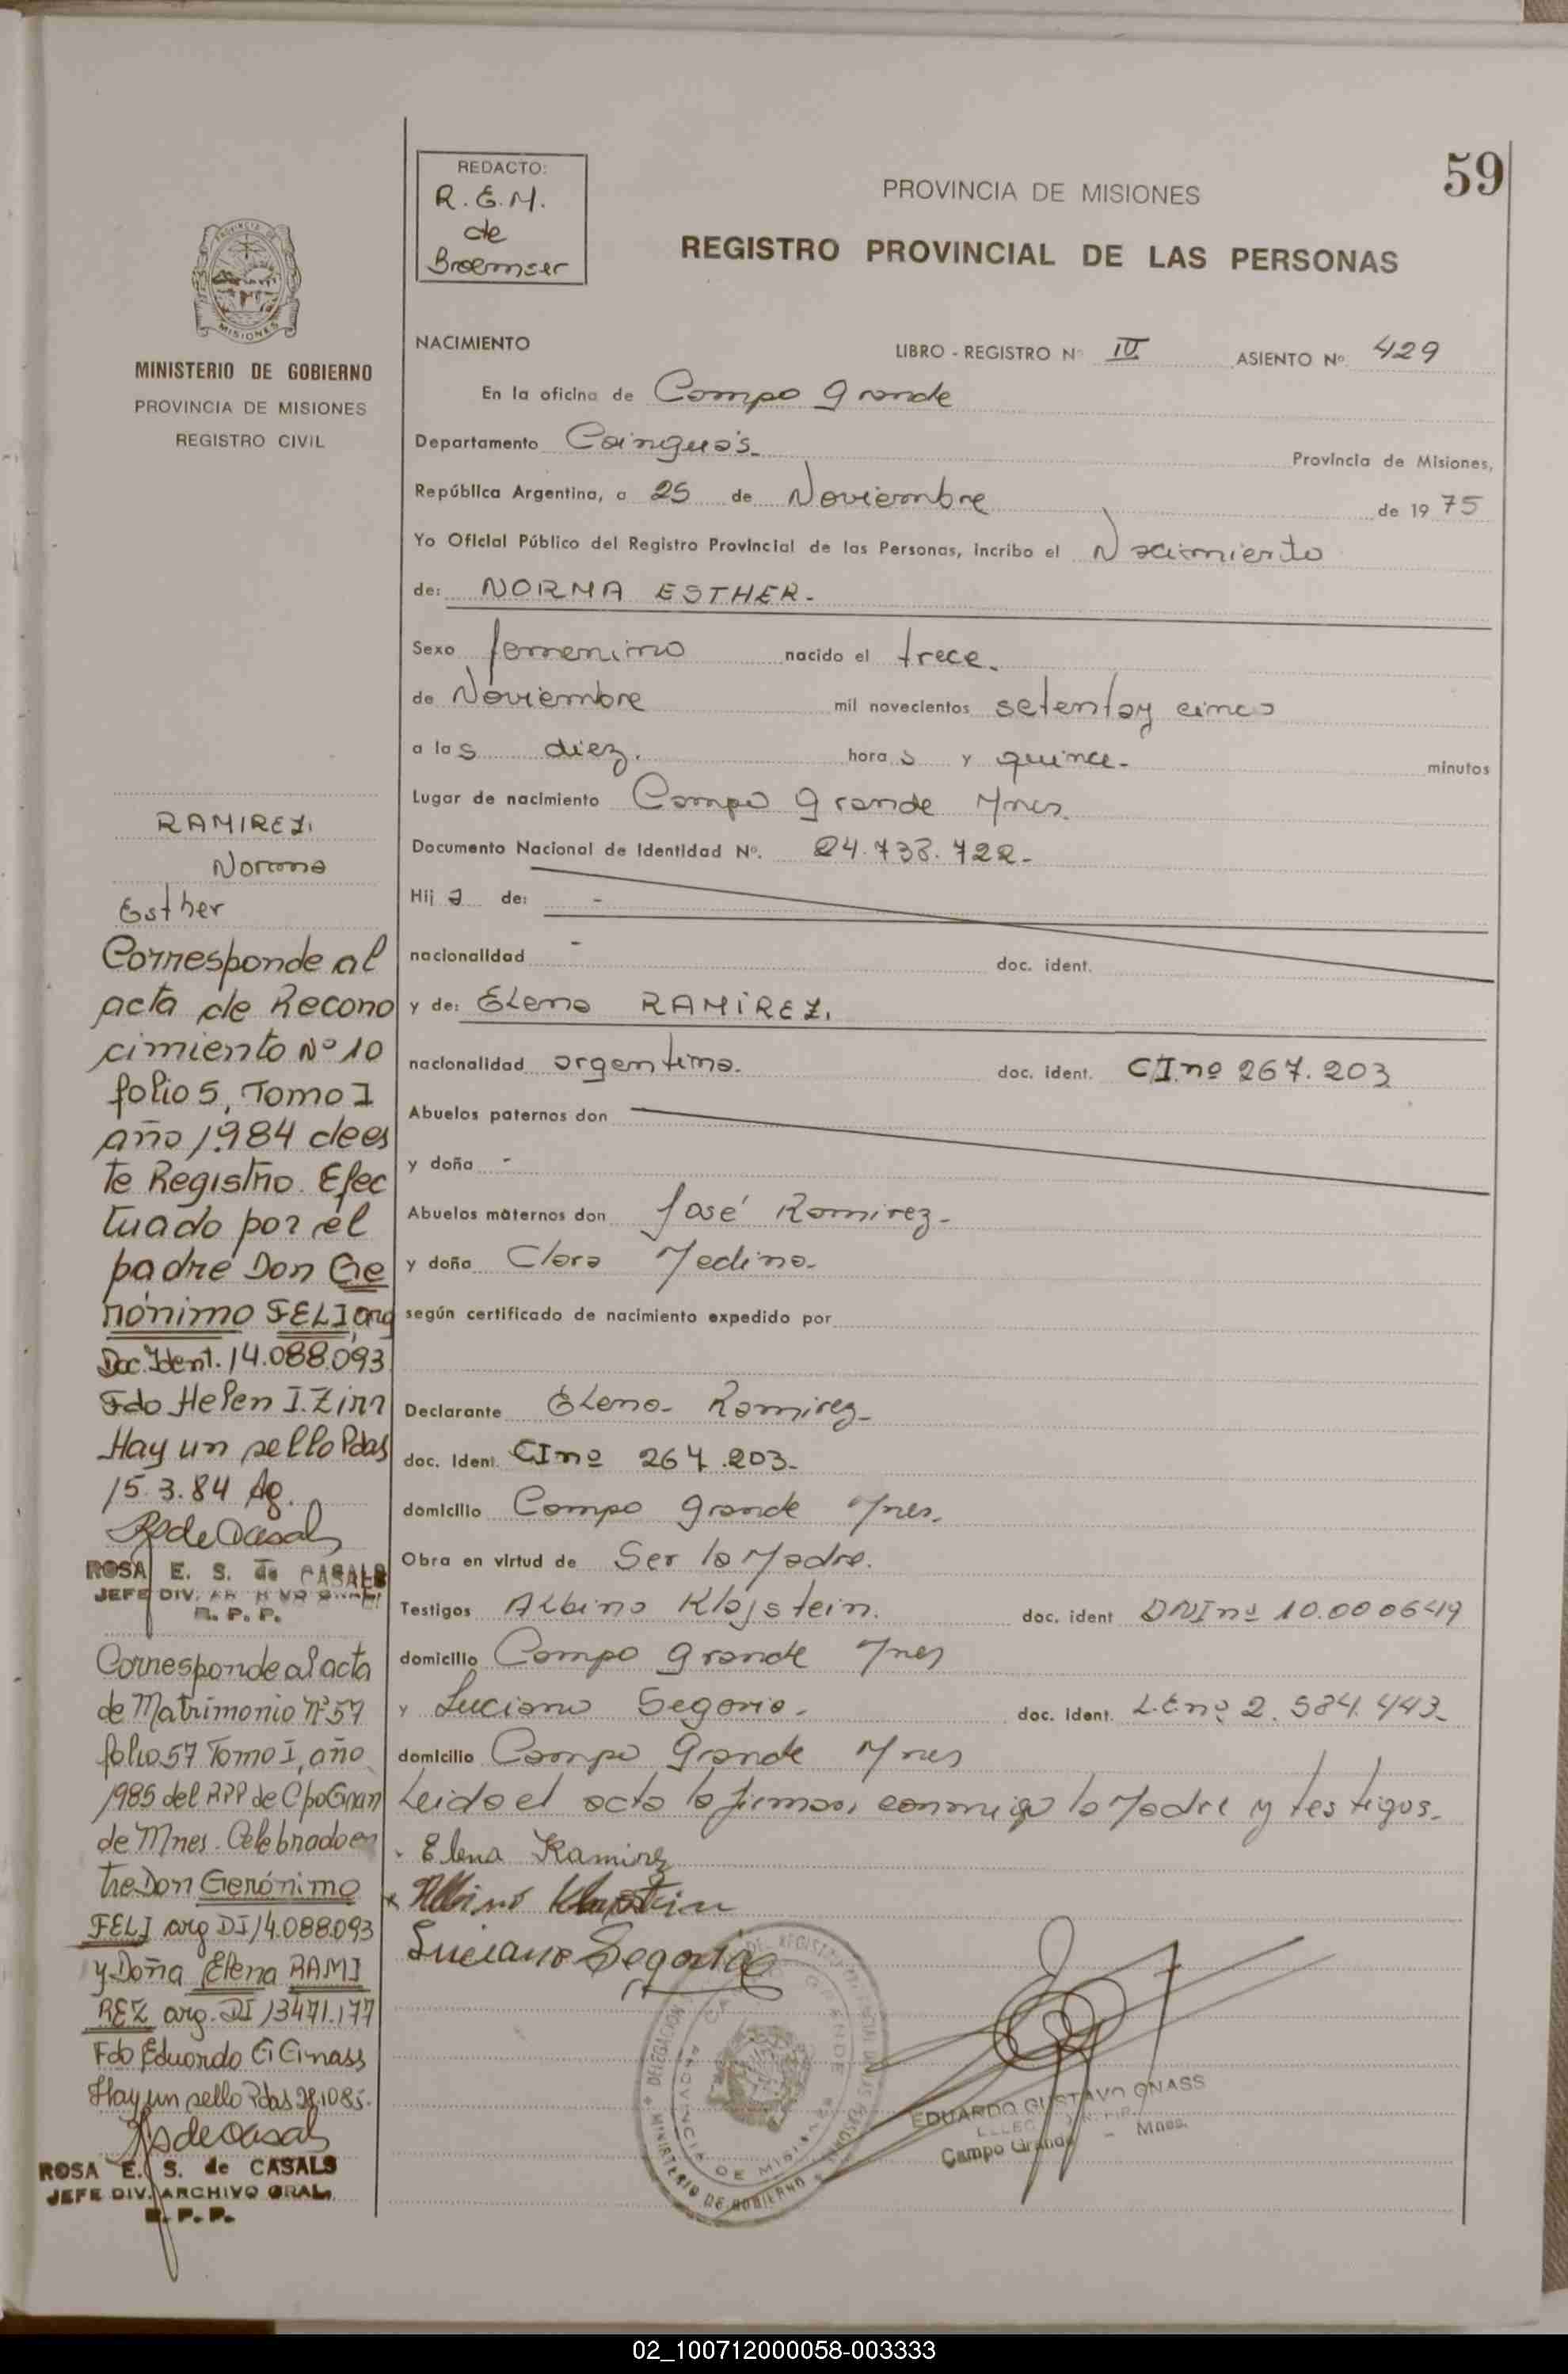 59
REDACTO:
R. E. M.
de
Broemser
PROVINCIA DE MISIONES
REGISTRO PROVINCIAL DE LAS PERSONAS
MISIONES
MINISTERIO DE GOBIERNO
PROVINCIA DE MISIONES
REGISTRO CIVIL
NACIMIENTO LIBRO - REGISTRO Nº ASIENTO Nº 429
En la oficina de Campo Grande
Departamento Cainguás- Provincia de Misiones,
República Argentina, a 25 de Noviembre de 19 75
Yo Oficial Público del Registro Provincial de las Personas, incribo el Nacimiento
de: NORMA ESTHER-
Sexo femenino nacido el trece-
de Noviembre mil novecientos setenta y cinco
a las diez. horas y quince- minutos
Lugar de nacimiento Campo Grande Mnes.
Documento Nacional de Identidad Nº. 24.738.722-
Hij a de: -
nacionalidad - doc. ident.
y de: Elena RAMÍREZ.
nacionalidad argentina. doc. ident. CI.nº 267.203
Abuelos paternos don
y doña -
Abuelos maternos don José Ramirez-
y doña Clara Medina-
según certificado de nacimiento expedido por
Declarante Elena Ramirez-
doc. Ident. CI nº 267.203-
domicilio Campo Grande Mnes.
Obra en virtud de Ser la Madre.
Testigos Albino Klajstein. doc. ident DNI nº 10.000649
domicilio Campo Grande Mnes
y Luciano Segovia- doc. ident. L.E nº 2.584.443-
domicilio Campo Grande Mnes
Leida el acta la firman conmigo la Madre y testigos-
Elena Ramirez
Albino
Luciano Segovia
EDUARDO GUSTAVO GNASS
Campo Grande - Mnes.
RAMIREZ.
Norma
Esther
Corresponde al
acta de Recono
cimiento Nº 10
folio 5, Tomo I
año 1984 de es
te Registro. Efec
tuado por el
padre Don Ge
rónimo FELI, arg
Doc. Ident. 14.088.093
Fdo Helen I. Zinn
Hay un sello Pdas
15.3.84 Ag.
RSdeCasals
ROSA E. S. de CASALS
JEFE DIV. ARCHIVO GRAL.
R. P. P.
Corresponde al acta
de Matrimonio Nº 57
folio 57 Tomo I, año
1985 del RPP de Cpo Gran
de Mnes. Celebrado en
tre Don Gerónimo
FELI arg DI 14.088.093
y Doña Elena RAMI
REZ arg. DI 13471.177
Fdo Eduardo G Gnass
Hay un sello Pdas
RSdeCasals
ROSA E. S. de CASALS
JEFE DIV. ARCHIVO GRAL.
R. P. P.
02_100712000058-003333